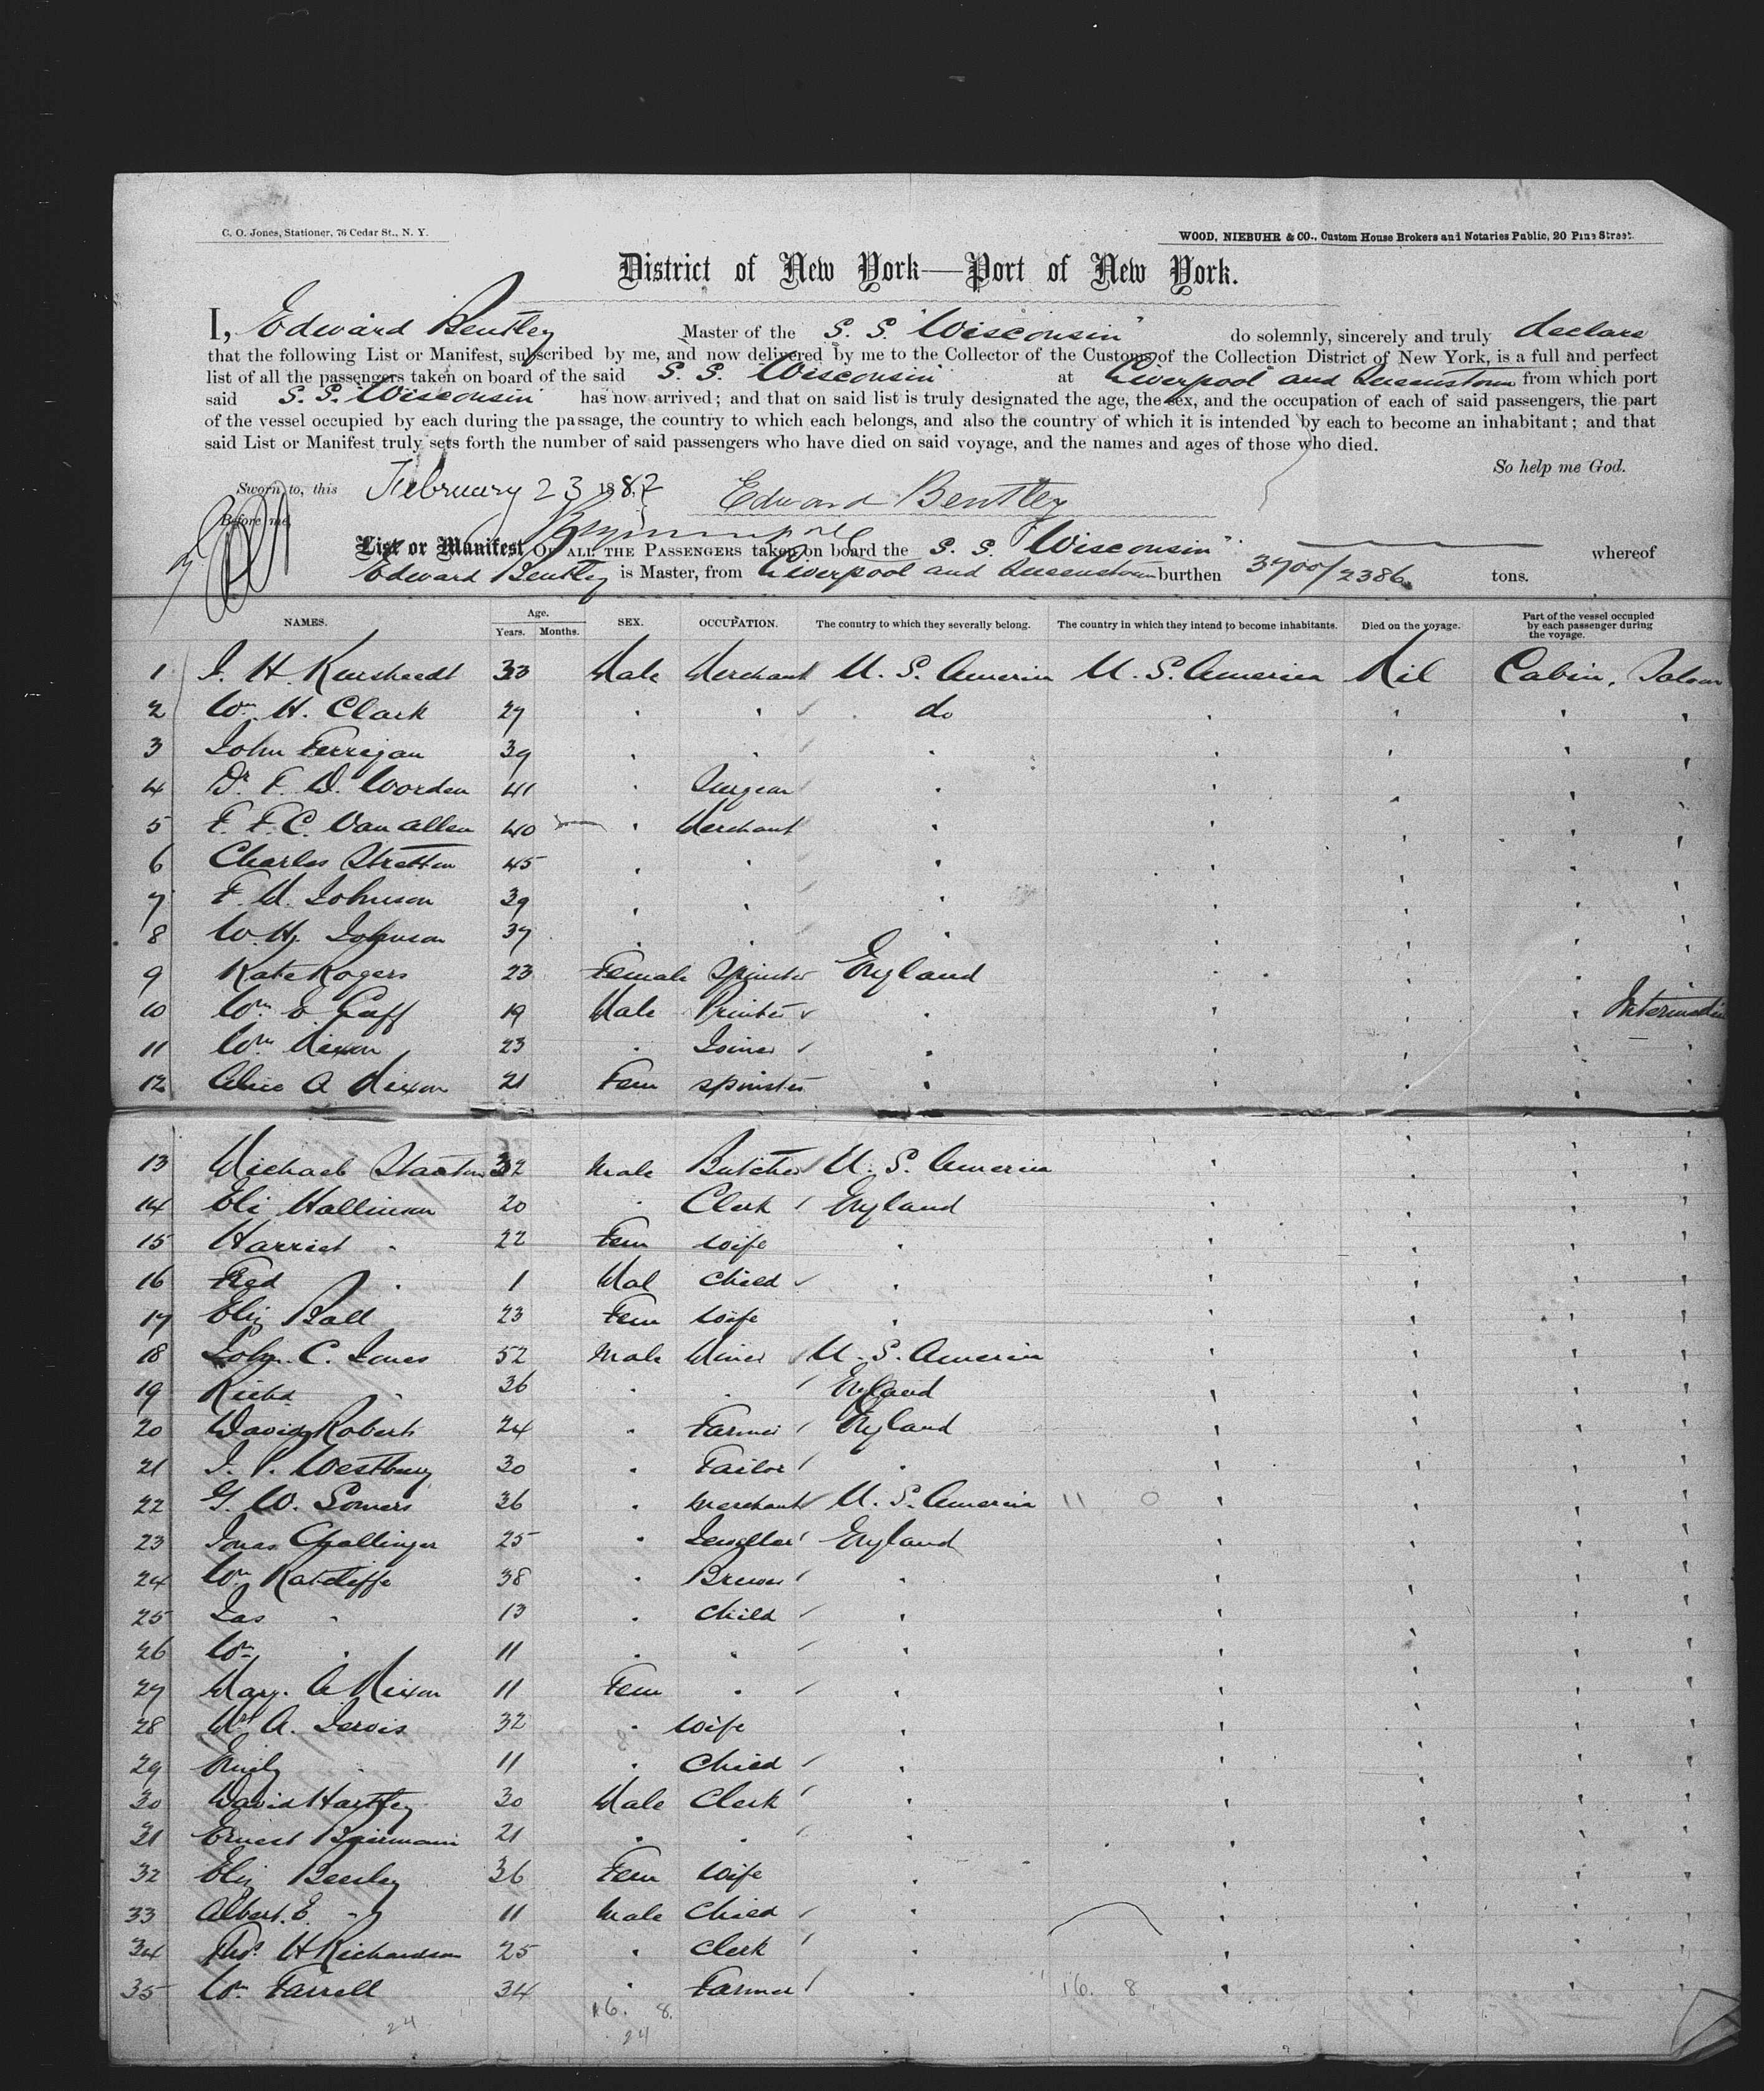 C. O. Jones, Stationer, 76 Cedar St., N. Y.
WOOD, NIEBUHR & CO., Custom House Brokers and Notaries Public, 20 Pine Street.
District of New York—Port of New York.
I, Edward Bentley Master of the S. S. "Wisconsin" do solemnly, sincerely and truly declare
that the following List or Manifest, subscribed by me, and now delivered by me to the Collector of the Customs of the Collection District of New York, is a full and perfect
list of all the passengers taken on board of the said S. S. Wisconsin at Liverpool and Queenstown from which port
said S. S. Wisconsin has now arrived; and that on said list is truly designated the age, the sex, and the occupation of each of said passengers, the part
of the vessel occupied by each during the passage, the country to which each belongs, and also the country of which it is intended by each to become an inhabitant; and that
said List or Manifest truly sets forth the number of said passengers who have died on said voyage, and the names and ages of those who died.
So help me God.
Sworn to, this February 23 1882 Edward Bentley
Before me,
List or Manifest OF ALL THE PASSENGERS taken on board the S. S. "Wisconsin" whereof
Edward Bentley is Master, from Liverpool and Queenstown burthen 3700/2386 tons.
NAMES. Age. Years. Months. SEX. OCCUPATION. The country to which they severally belong. The country in which they intend to become inhabitants. Died on the voyage. Part of the vessel occupied by each passenger during the voyage.
1 J. H. Kursheedt 33 Male Merchant U. S. America U. S. America Nil Cabin, Saloon
2 Wm H. Clark 27 " " do " " " "
3 John Ferrigan 39 " " " " " " "
4 Dr F. D. Worden 41 " Surgeon " " " " "
5 F. F. C. Van Allen 40 " Merchant " " " " "
6 Charles Stretton 45 " " " " " " "
7 F. W. Johnson 39 " " " " " " "
8 W. H. Johnson 37 " " " " " " "
9 Kate Rogers 23 Female Spinster England " " "
10 Wm E. Goff 19 Male Printer " " " " Intermediate
11 Wm Nixon 23 " Joiner " " " " "
12 Alice A Nixon 21 Fem Spinster " " " " "
13 Michael 32 Male Butcher U. S. America " " " "
14 Eli Hallinson 20 " Clerk England " " " "
15 Harriet " 22 Fem Wife " " " " "
16 Fred " 1 Mal Child " " " " "
17 Eliz Ball 23 Fem Wife " " " " "
18 John C. Jones 52 Male Miner U. S. America " " " "
19 Richd " 36 " " England " " " "
20 David Roberts 24 " Farmer England " " " "
21 J. P. Westbury 30 " Tailor " " " " "
22 G. W. Somers 36 " Merchant U. S. America 11 0 " " " "
23 Jonas Challinger 25 " Jeweller England " " " "
24 Wm Ratcliffe 38 " Brewer " " " " "
25 Jas " 13 " Child " " " " "
26 Wm " 11 " " " " " " "
27 Mary. A Nixon 11 Fem " " " " " "
28 Mrs A. Jervis 32 " Wife " " " " "
29 Emily " 11 " Child " " " " "
30 David Hartley 30 Male Clerk " " " " "
31 Ernest 21 " " " " " " "
32 Eliz Beesley 36 Fem Wife " " " " "
33 Albert. E. " 11 Male Child " " " " "
34 Thos H Richardson 25 " Clerk " " " " "
35 Wm Farrell 34 " Farmer " 16. 8 " " " "
24 16. 8.
24